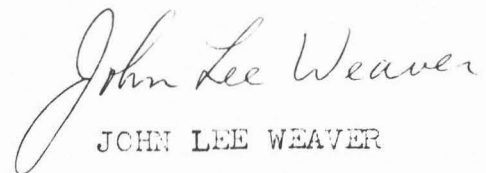 John Lee Weaver
JOHN LEE WEAVER